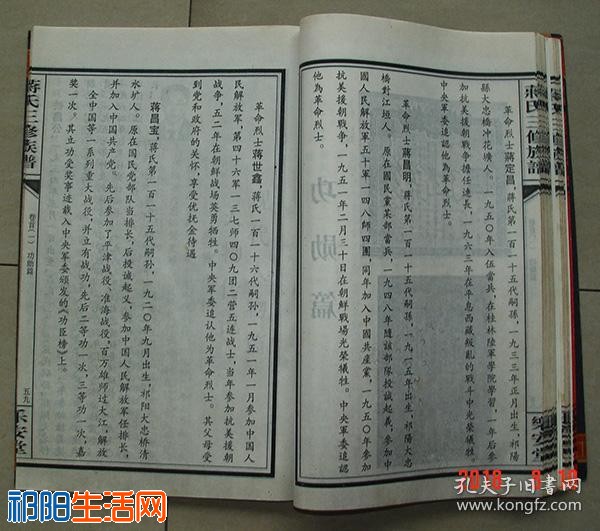 蒋氏三修族譜
革命烈士蒋定昌，蒋氏第一百一十五代嗣孫，一九三三年正月出生，祁陽
縣大忠橋冲花壙人。一九五〇年入伍當兵，在桂林陸軍學院學習，一年后參
加抗美援朝戰争擔任連長，一九六三年在平息西藏叛亂的戰斗中光榮犧牲。
中央軍委追認他為革命烈士。
革命烈士蒋昌明，蒋氏第一百一十五代嗣孫，一九一五年出生，祁陽大忠
橋對江垣人。原在國民黨某部當兵，一九四八年隨該部隊投誠起義，參加中
國人民解放軍五十軍一四八師四團，同年加入中國共産黨，一九五〇年參加
抗美援朝戰争，一九五一年二月三十日在朝鮮戰場光榮犧牲。中央軍委追認
他為革命烈士。
樂安堂
革命烈士蒋世鑫，蒋氏第一百一十六代嗣孙，一九五一年一月参加中国人
民解放军，第四十六军一三七师四〇九团二营五连战士，当年参加抗美援朝
战争，五二年在朝鲜战场英勇牺牲。中央军委追认他为革命烈士。其父母受
到党和政府的关怀，享受优抚金待遇
蒋昌宝，蒋氏第一百一十五代嗣孙，一九二〇年九月出生，祁阳大忠桥清
水圹人。原在国民党部队当排长，后投诚起义，参加中国人民解放军任排长，
并加入中国共产党。先后参加了平津战役，淮海战役，百万雄师过大江，解放
全中国等一系列重大战役，并立有战功，先后二等功一次，三等功一次，嘉
奖一次。其立功受奖事迹载入中央军委颁发的《功臣榜》上。
蒋氏三修族谱
卷首(一) 功勋篇
五九
乐安堂
功勋篇
祁阳生活网
孔夫子旧书网
www.kongfz.com